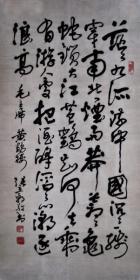 茫々九派流中國沉々一线
穿南北烟雨莽苍々龟
蛇锁大江黄鹤知何去剩
有游人處把酒酹滔々心潮逐
浪高 毛主席 黄鹤楼 书